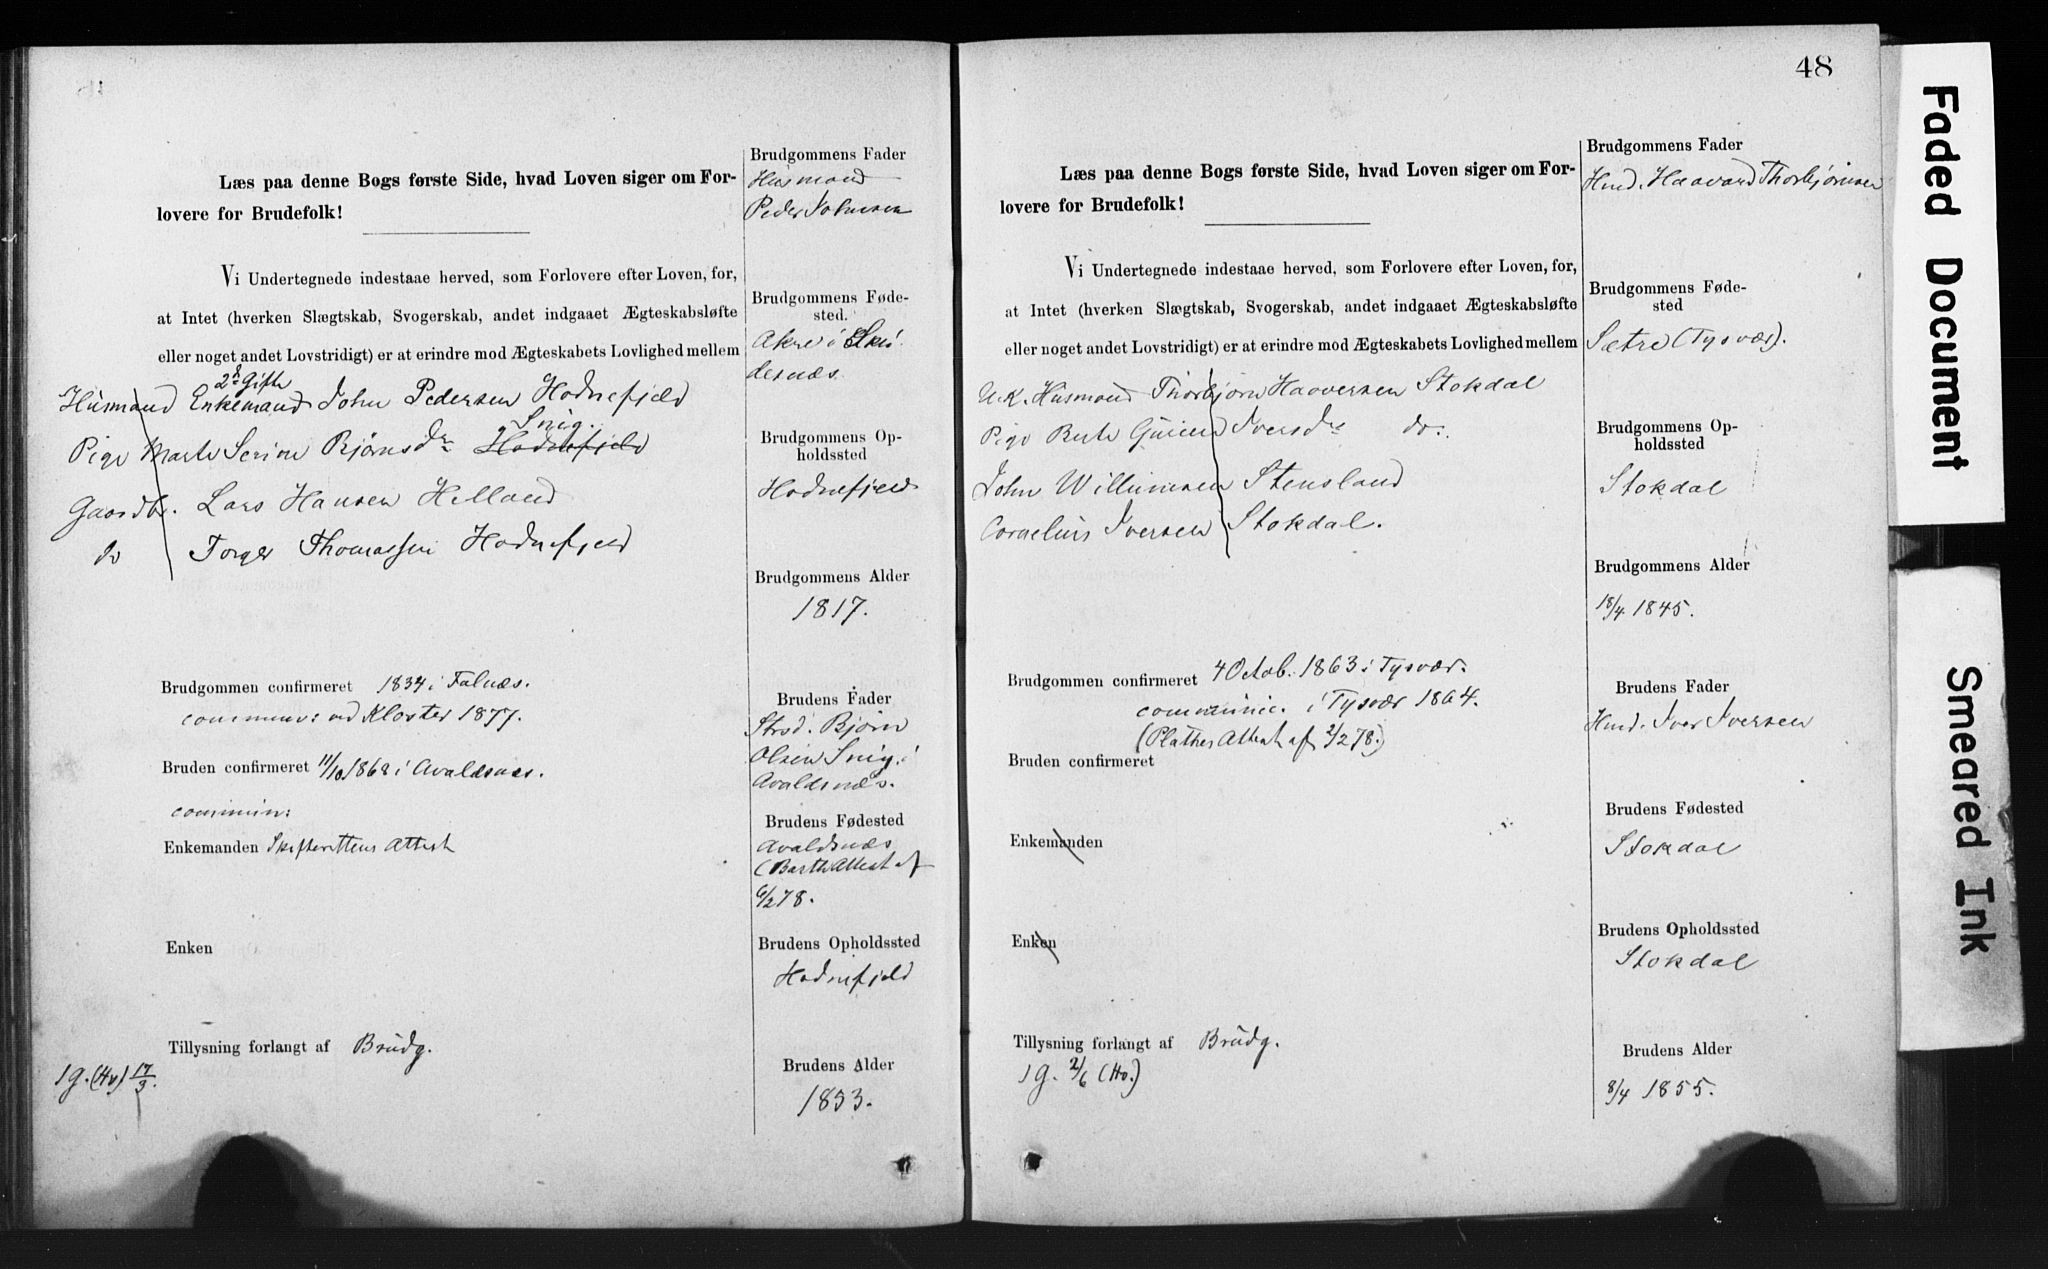 Læs paa denne Bogs første Side, hvad Loven siger om For-
lovere for Brudefolk!
Vi Undertegnede indestaae herved, som Forlovere efter Loven, for,
at Intet (hverken Slægtskab, Svogerskab, andet indgaaet Ægteskabsløfte
eller noget andet Lovstridigt) er at erindre mod Ægteskabets Lovlighed mellem
2d Gifte
Husmand Enkemand John Pedersen Hodnefjeld
Snig.
Pige Marte Serine Bjørnsdr Hodnefjeld
Gaardbr. Lars Hansen Helland
do Torger Thomassen Hodnefjeld
Brudgommen confirmeret 1834 i Falnæs.
commun: ved Kloster 1877.
Bruden confirmeret 11/10 1868 i Avaldsnæs.
commun:
Enkemanden Skifterettens Attest
Enken
Tillysning forlangt af Brudg.
1 g. (Hv) 17/3.
Brudgommens Fader
Husmand
Peder Johnsen
Brudgommens Føde-
sted.
Akre i Sku-
desnæs
Brudgommens Op-
holdssted
Hodnefjeld
Brudgommens Alder
1817.
Brudens Fader
Strsd. Bjørn
Olsen Snig i
Avaldsnæs.
Brudens Fødested
Avaldsnæs
(Barths Attest af
6/2 78.
Brudens Opholdssted
Hodnefjeld
Brudens Alder
1853.
48
Læs paa denne Bogs første Side, hvad Loven siger om For-
lovere for Brudefolk!
Vi Undertegnede indestaae herved, som Forlovere efter Loven, for,
at Intet (hverken Slægtskab, Svogerskab, andet indgaaet Ægteskabsløfte
eller noget andet Lovstridigt) er at erindre mod Ægteskabets Lovlighed mellem
U.K. Husmand Thorbjørn Haaversen Stokdal
Pige Berte Iversdr do.
John Willumsen Stensland
Cornelius Iversen Stokdal.
Brudgommen confirmeret 4 Octob. 1863 i Tysvær.
communic. i Tysvær 1864.
(Plathes Attest af 2/2 78.)
Bruden confirmeret
Enkemanden
Enken
Tillysning forlangt af Brudg.
1 g. 2/6 (Hv.)
Brudgommens Fader
Hmd. Haavard Thorbjørnsen
Brudgommens Føde-
sted
Sætre (Tysvær).
Brudgommens Op-
holdssted
Stokdal
Brudgommens Alder
18/4 1845.
Brudens Fader
Hmd. Iver Iversen
Brudens Fødested
Stokdal
Brudens Opholdssted
Stokdal
Brudens Alder
8/4 1855.
Faded Document
Smeared Ink